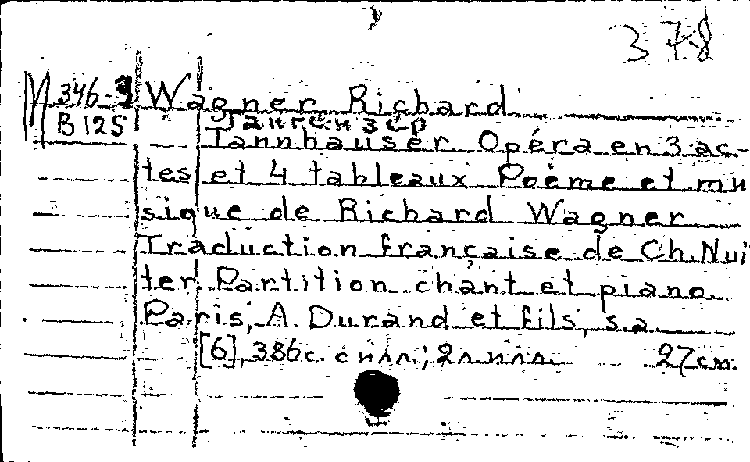 378
М 346-3 Wagner Richard
В 125
Tannhäuser. Opéra en 3 ac-
tes et 4 tableaux Poème et mu
sique de Richard Wagner
Traduction française de Ch. Nui
ter. Partition chant et piano
Paris, A. Durand et fils, s.a.
[6], 386 с. с илл.; 2 л. илл. 27 см.